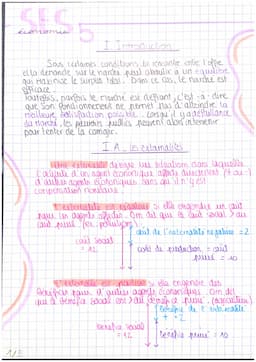 SES 5
économie
I Introduction
Sous certaines conditions la rencontre entre l'offre
et la demande sur le marché peut aboutir à un équilibre
qui maximise le surplus total. Dans ce cas, le marché est
efficace.
Toutefois, parfois le marché est défaillant, c'est-à-dire
que son fonctionnement ne permet pas d'atteindre la
meilleure satisfaction possible. Lorsqu'il y a défaillance
du marché, les pouvoirs publics peuvent alors intervenir
pour tenter de la corriger.
I A. les externalités
Une externalité désigne une situation dans laquelle
l'activité d'un agent économique affecte directement (+ ou -)
d'autres agents économiques sans qu'il n'y est
compensation monétaire.
externalité est négative si elle engendre un coût
pour les agents affectés. On dit que le coût social > au
coût privé (ex. pollution).
coût de l'externalité négative = 2
coût social
= 12
coût de production = coût
privé = 10
externalité est positive si elle engendre des
bénéfices pour d'autres agents économiques. On dit
que le bénéfice social est > au bénéfice privé
bénéfice de l'externalité
+ = 2
bénéfice social
= 12
bénéfice privé = 10